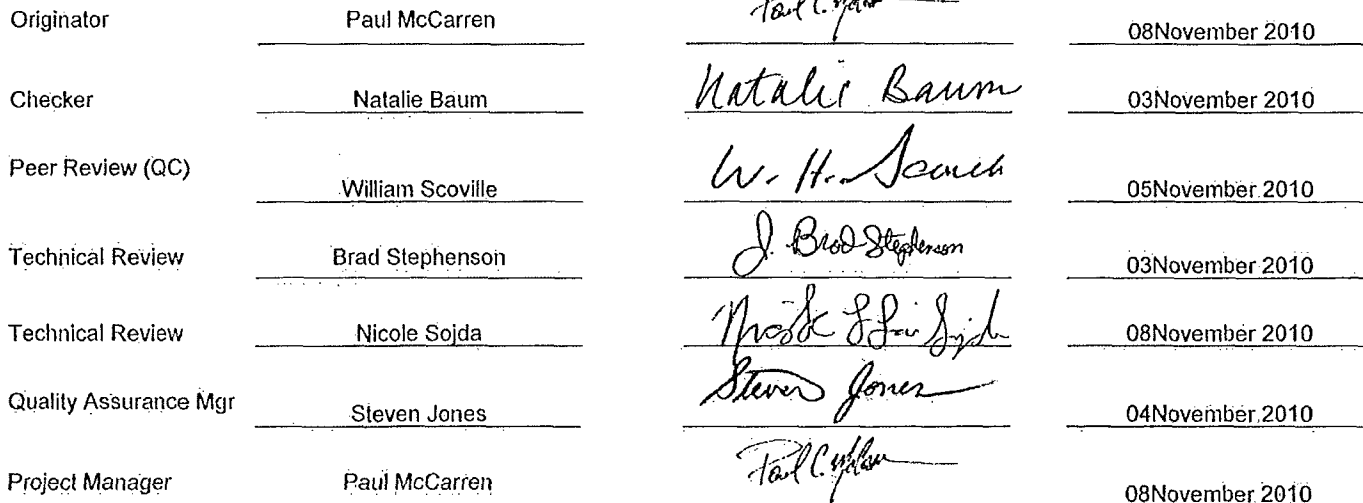 Originator Paul McCarren Paul C. 08November 2010
Checker Natalie Baum Natalie Baum 03November 2010
Peer Review (QC) William Scoville W. H. 05November 2010
Technical Review Brad Stephenson J. Brad Stephenson 03November 2010
Technical Review Nicole Sojda 08November 2010
Quality Assurance Mgr Steven Jones Steven Jones 04November 2010
Project Manager Paul McCarren Paul C. 08November 2010